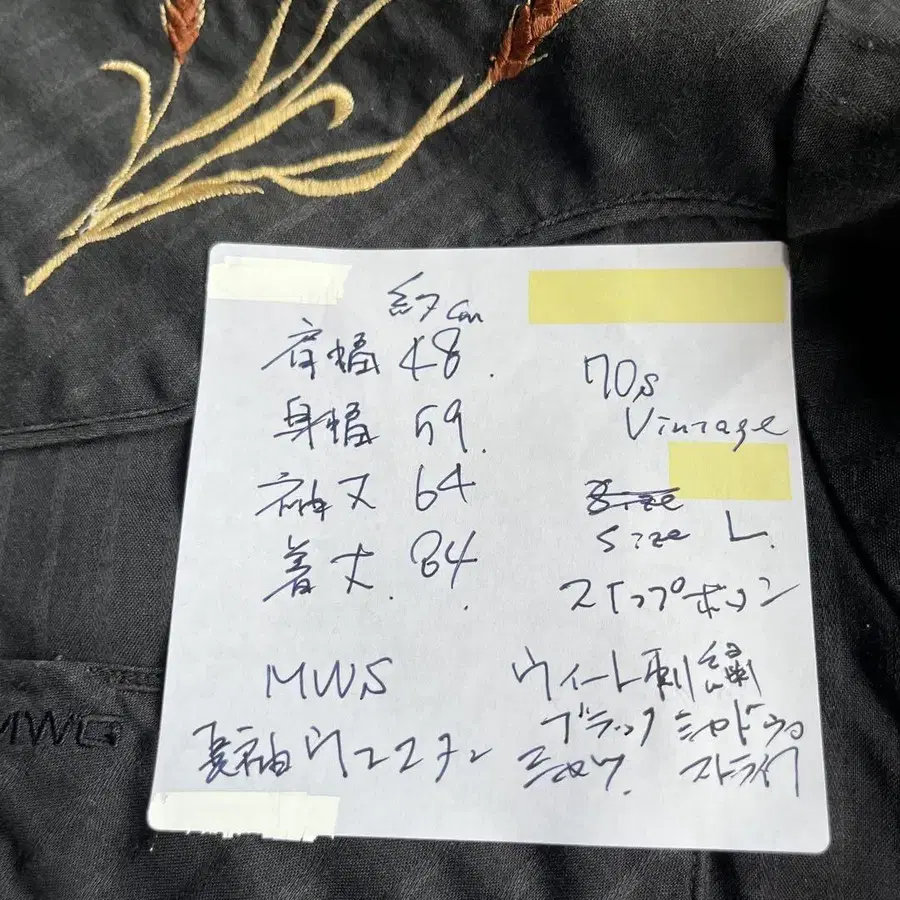 約cm
肩幅 48.
身幅 59.
袖丈 64
着丈. 84.
70s
Vintage
Size
Size L.
スナップボタン
MWS
ウィート刺繍
長袖ウエスタン
ブラック シャドウ
シャツ. ストライプ